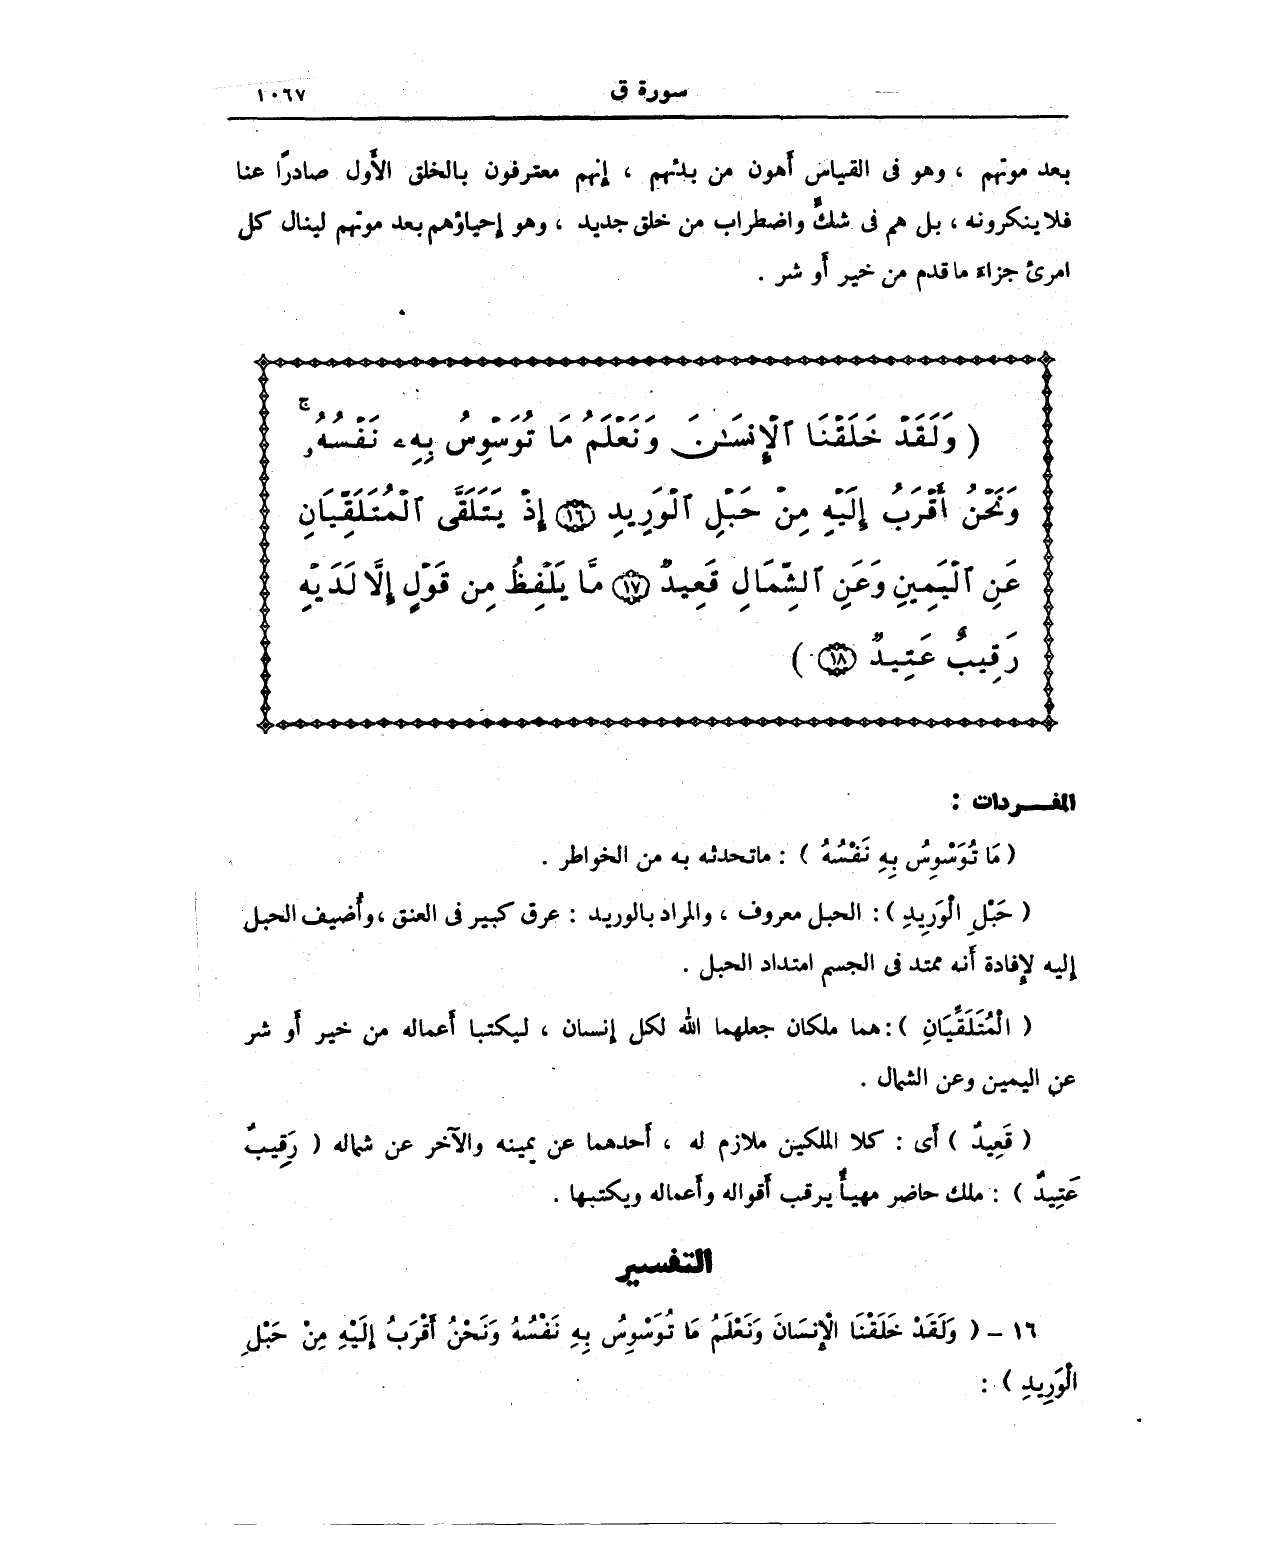 سورة ق
١٠٦٧
بعد موتهم ، وهو فى القياس أهون من بدئهم ، إنهم معترفون بالخلق الأول صادرًا عنا
فلا ينكرونه ، بل هم فى شكٍّ واضطراب من خلق جديد ، وهو إحياؤهم بعد موتهم لينال كل
امرئ جزاء ما قدم من خير أو شر .
( وَلَقَدْ خَلَقْنَا ٱلْإِنسَـٰنَ وَنَعْلَمُ مَا تُوَسْوِسُ بِهِۦ نَفْسُهُۥ ۚ
وَنَحْنُ أَقْرَبُ إِلَيْهِ مِنْ حَبْلِ ٱلْوَرِيدِ ١٦ إِذْ يَتَلَقَّى ٱلْمُتَلَقِّيَانِ
عَنِ ٱلْيَمِينِ وَعَنِ ٱلشِّمَالِ قَعِيدٌ ١٧ مَّا يَلْفِظُ مِن قَوْلٍ إِلَّا لَدَيْهِ
رَقِيبٌ عَتِيدٌ ١٨ )
المفــردات :
( مَا تُوَسْوِسُ بِهِ نَفْسُهُ ) : ما تحدثه به من الخواطر .
( حَبْلِ الْوَرِيدِ ) : الحبل معروف ، والمراد بالوريد : عرق كبير فى العنق ، وأُضيف الحبل
إليه لإفادة أنه ممتد فى الجسم امتداد الحبل .
( الْمُتَلَقِّيَانِ ) : هما ملكان جعلهما الله لكل إنسان ، ليكتبا أعماله من خير أو شر
عن اليمين وعن الشمال .
( قَعِيدٌ ) أى : كلا الملكين ملازم له ، أحدهما عن يمينه والآخر عن شماله ( رَقِيبٌ
عَتِيدٌ ) : ملك حاضر مهيأٌ يرقب أقواله وأعماله ويكتبها .
التفسير
١٦ - ( وَلَقَدْ خَلَقْنَا الْإِنسَانَ وَنَعْلَمُ مَا تُوَسْوِسُ بِهِ نَفْسُهُ وَنَحْنُ أَقْرَبُ إِلَيْهِ مِنْ حَبْلِ
الْوَرِيدِ ) :